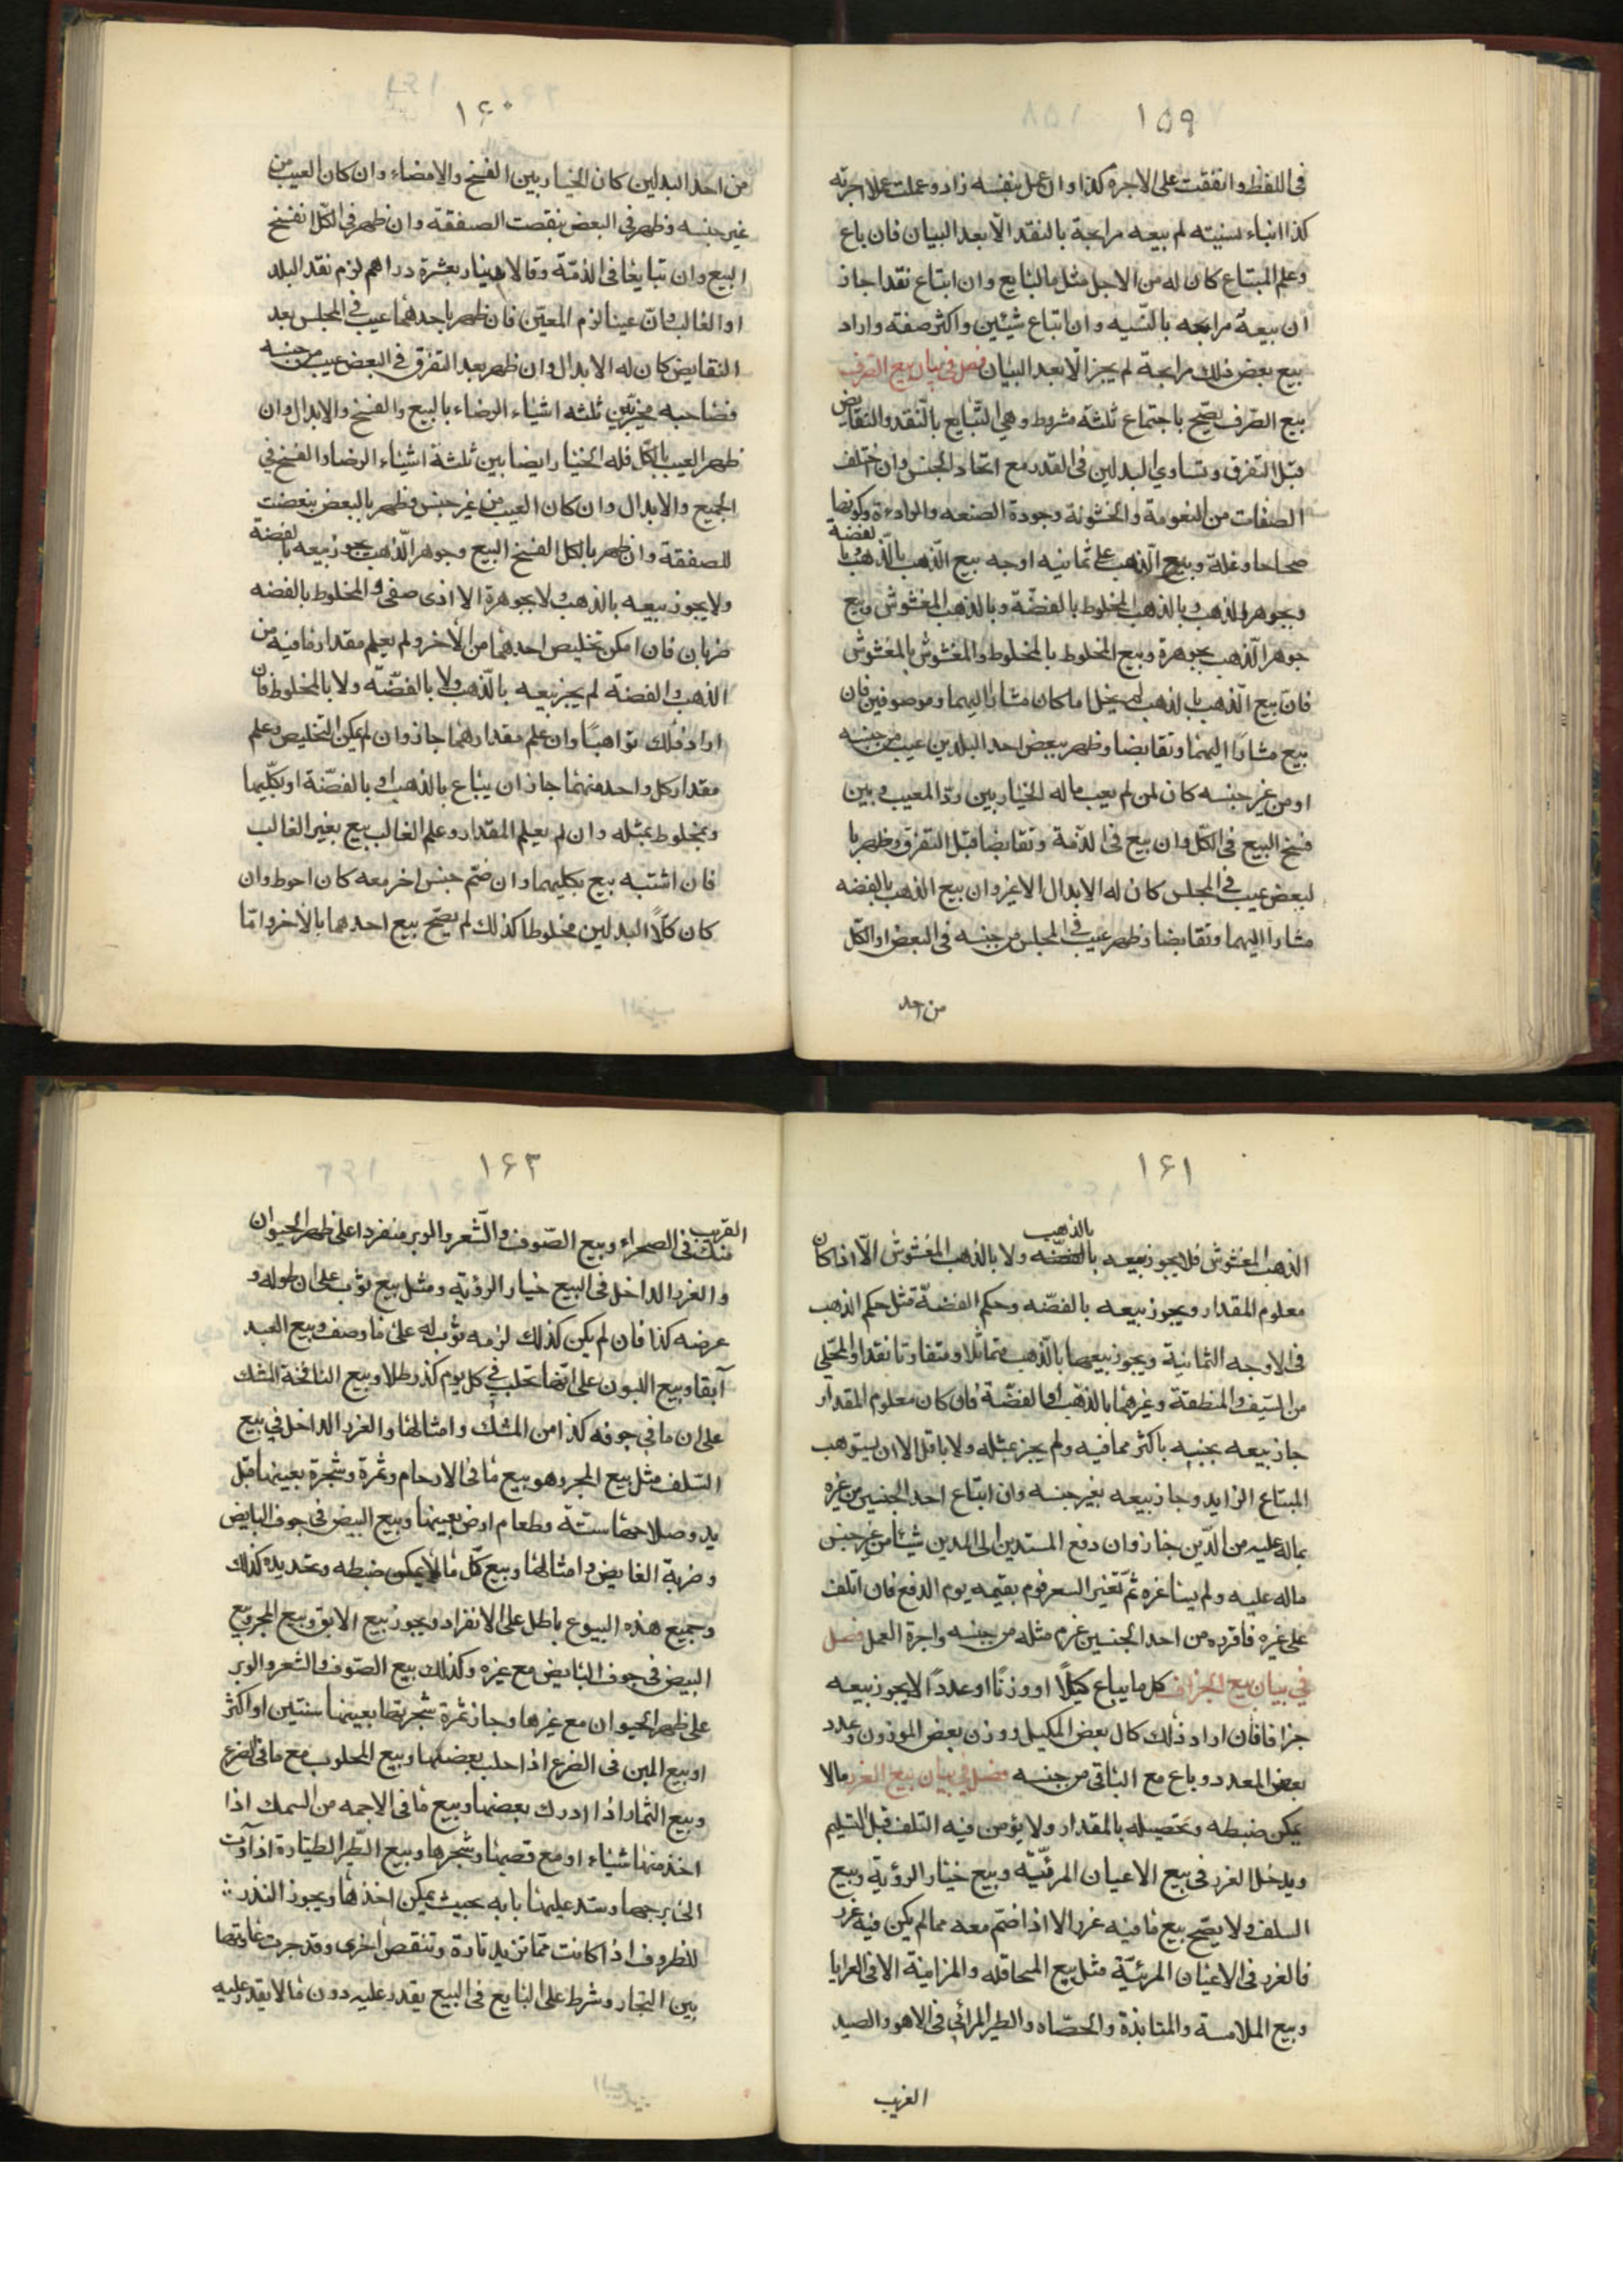 ١٥٩
فى اللفظ واتفقت على الاجرة كذا وان عمل بنفسه زاد وعملت عملا اجرته
كذا اتباء نسيئة لم يبيعه مرابحة بالنقد الّا بعد البيان فان باع
وعلم المبتاع كان له من الاجل مثل ما للبايع وان ابتاع نقدا جاز
ان بيعه مرابحه بالنسيه وان اتباع شيئين واكثر صفقة واراد
بيع بعض ذلك مرابحة لم يجز الّا بعد البيان فصل فى بيان بيع الصرف
بيع الصّرف يصّح باجتماع ثلثة شروط وهى التبايع بالنّقد والتقابض
قبل التفرق وتساوى البدلين فى القدر مع اتحاد الجنس وان اختلف
الصفات من النعومة والخشونة وجودة الصنعه والرداءة وكونها
صحاحا وغلّة وبيع الّذهب على ثمانيه اوجه بيع الذّهب بالّذهب وبالفضة
وبجوهر الذهب وبالذهب المخلوط بالفضّة وبالذهب المغشوش وبيع
جوهر الّذهب بجوهرة وبيع المخلوط بالمخلوط والمغشوش بالمغشوش
فان بيع الّذهب بالذهب لم يخل اما كان مشارا اليهما وموصوفين فان
بيع مشارًا اليهما وتقابضا وظهر ببعض احد البدلين عيب من جنسه
او من غير جنسه كان لمن لم يعب ماله الخيار بين ردّ المعيب وبين
فسخ البيع فى الكّل وان بيع فى الذمة وتقابضا قبل التفرق وظهر با
لبعض عيب فى المجلس كان له الابدال لا غير وان بيع الذهب بالفضه
مشارا اليهما وتقابضا وظهر عيب فى المجلس من جنسه فى البعض او الكّل
من احد
١٦٠
من احد البدلين كان الخيار بين الفسخ والامضاء وان كان العيب من
غير جنسه وظهر فى البعض بنقصت الصفقة وان ظهر فى الكّل انفسخ
البيع وان تبايعا فى الذمّة وقالا دينار بعشرة دراهم لزم نقد البلد
او الغالب وان عينا لزم المعيّن فان ظهر باحدهما عيب فى المجلس بعد
التقابض كان له الابدال وان ظهر بعد التفرق فى البعض عيب من جنسه
فصاحبه مخير بين ثلثه اشياء الرضاء بالبيع والفسخ والابدال وان
ظهر العيب بالكّل فله الخيار ايضا بين ثلثة اشياء الرضا والفسخ فى
الجميع والابدال وان كان العيب من غير جنس وظهر بالبعض بنعضت
للصفقة وان ظهر بالكل انفسخ البيع وجوهر الّذهب يجوز بيعه بالفضة
ولا يجوز بيعه بالذهب ولا بجوهرة الا اذى صفى والمخلوط بالفضه
ضربان فان امكن تخليص احدهما من الأخر ولم يعلم مقدار ما فيه من
الذهب والفضة لم يجز بيعه بالّذهب ولا بالفضّه ولا بالمخلوط فان
اراد ذلك تواهبًا وان علم مقدارهما جاز وان لم يمكن التخليص وعلم
مقدار كل واحد منهما جاز ان يباع بالذهب وبالفضّة او بكّليهما
وبمخلوط بمثله وان لم يعلم المقدار وعلم الغالب بيع بغير الغالب
فان اشتبه بيع بكليهما وان ضّم جنس اخر معه كان احوط وان
كان كلًا البدلين مخلوطا كذلك لم يصّح بيع احدهما بالأخر وامّا
١٦١
الذهب المغشوش فلا يجوز بيعه بالفضّه بالذهب ولا بالذهب المغشوش الّا اذا كان
معلوم المقدار ويجوز بيعه بالفضّه وحكم الفضة مثل حكم الذهب
فى الاوجه الثمانية ويجوز بيعها بالّذهب متماثلا ومتفاوتا نقدا والمحّلى
من السّيف والمنطقة وغيرهما بالذهب او بالفضّة فان كان معلوم المقدار
جاز بيعه بجنسه باكثر مما فيه ولم يجز بمثله ولا باقل الا ان يستوهب
المبتاع الزايد وجاز بيعه بغير جنسه وان ابتاع احد الجنسين من غيره
بماله عليه من الدّين جاز وان دفع المستدين الى المدين شيئا من غير جنس
ماله عليه ولم يسا غره ثمّ تغير السعر قوم بقيمه يوم الدفع فان اتلف
على غيره فاقرده من احد الجنسين غرم مثله من جنسه واجرة العمل فصل
فى بيان بيع الجزاف كل ما يباع كيلًا او وزنًا او عددًا لا يجوز بيعه
جزافا فان اراد ذلك كال بعض المكيل ووزن بعض الموزون وعدد
بعض المعدود وباع مع الباقى من جنسه فصل فى بيان بيع الغرر ما لا
يمكن ضبطه وتحصيله بالمقدار ولا يؤمن فيه التلف قبل التسليم
ويدخل الغرر فى بيع الاعيان المرئيّه وبيع خيار الرؤية وبيع
السلف ولا يصّح بيع ما فيه غرر الا اذا ضّم معه مما لم يكن فيه غرر
فالغرر فى الاعيان المرئيّة مثل بيع المحاقله والمزابنة الا فى العرايا
وبيع الملامسة والمنابذة والحصّاه والطير المرائى فى الاهو والصيد
القريب
١٦٢
القريب منك فى الصحراء وبيع الصّوف والّشعر والوبر منفردا على ظهر الحيوان
والغرر الداخل فى البيع خيار الرؤية ومثل بيع ثوب على ان طوله و
عرضه كذا فان لم يكن كذلك لزمه ثوب له على ما وصف وبيع العبد
آبقا وبيع اللبون على انها تحلب فى كل يوم كذا رطلا وبيع النافخة المشك
على ان ما فى جوفه كذا من المشك وامثالها والغرر الداخل فى بيع
السّلف مثل بيع المجر وهو بيع ما فى الارحام وثمرة وشجرة بعينها قبل
يدو صلاحها سنة وطعام ارض بعينها وبيع البيض فى جوف البايض
وضربة الغايص وامثالها وبيع كّل ما لا يمكن ضبطه وتحديده كذلك
وجميع هذه البيوع باطل على الانفراد ويجوز بيع الابق وبيع المجر وبيع
البيض فى جوف البايض مع غيره وكذلك بيع الصّوف والشعر والوبر
على ظهر الحيوان مع غيرها وجاز ثمرة شجرتها بعينها سنتين او اكثر
او بيع اللبن فى الضرع اذا حلب بعضها وبيع المحلوب مع ما فى الضرع
وبيع الثمار اذا ادرك بعضها وبيع ما فى الاجمه من السمك اذا
اخذ منها شياء او مع قصبها وشجرها وبيع الطّير الطيارة اذا آوت
الى برجها وسّد عليها بابه بحيث يمكن اخذها ويجوز النذر
للظروف اذا كانت ممّا تزيد تارة وتنقص اخرى وقد جرت عادتها
بين التجار وشرط على البايع فى البيع يقدر عليه دون ما لا يقدر عليه